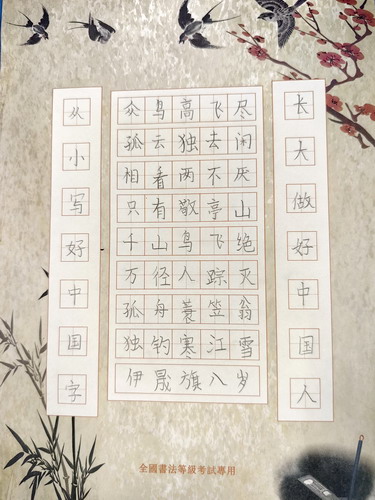 从小写好中国字
众鸟高飞尽
孤云独去闲
相看两不厌
只有敬亭山
千山鸟飞绝
万径人踪灭
孤舟蓑笠翁
独钓寒江雪
伊晟旗八岁
长大做好中国人
全國書法等級考試專用